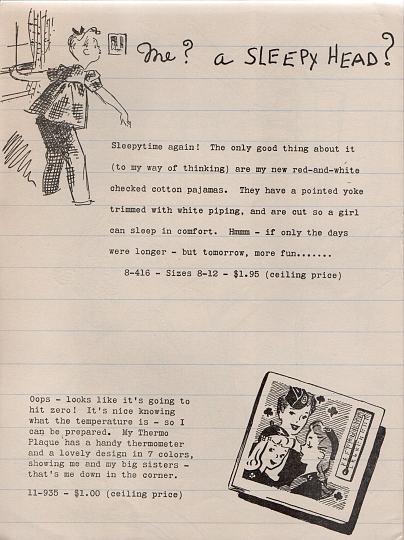 Me? a SLEEPY HEAD?
Sleepytime again! The only good thing about it
(to my way of thinking) are my new red-and-white
checked cotton pajamas. They have a pointed yoke
trimmed with white piping, and are cut so a girl
can sleep in comfort. Hmmm - if only the days
were longer - but tomorrow, more fun.......
8-416 - Sizes 8-12 - $1.95 (ceiling price)
Oops - looks like it's going to
hit zero! It's nice knowing
what the temperature is - so I
can be prepared. My Thermo
Plaque has a handy thermometer
and a lovely design in 7 colors,
showing me and my big sisters -
that's me down in the corner.
11-935 - $1.00 (ceiling price)